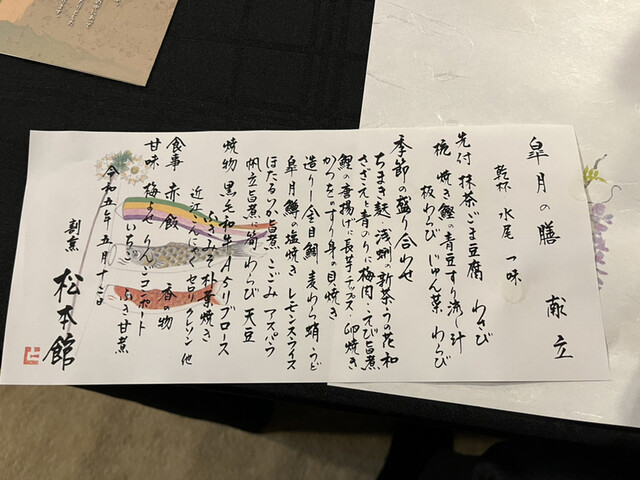 皐月の膳　献立
乾杯　水尾　一味
先付　抹茶ごま豆腐　わさび
椀　焼き鰹の青豆すり流し汁
板わらび　じゅん菜　わらび
季節の盛り合わせ
ちまき麩　浅蜊の新茶・うの花和
さざえと青のりに梅肉・えび旨煮
鯉の唐揚げに長芋チップス・卵焼き
かつをのすり身の貝焼き
造り　金目鯛　麦わら蛸・うど
皐月鱒の塩焼き　レモンスライス
ほたるいか旨煮・こごみ　アスパラ
帆立旨煮に筍　わらび　天豆
焼物　黒毛和牛A5リブロース
ふきみそ　朴葉焼き
近江こんにゃく　セロリ　クレソン　他
食事　赤飯　香の物
甘味　梅よせ　りんごコンポート
いちご　ふき甘煮
令和五年五月十三日
割烹　松本館